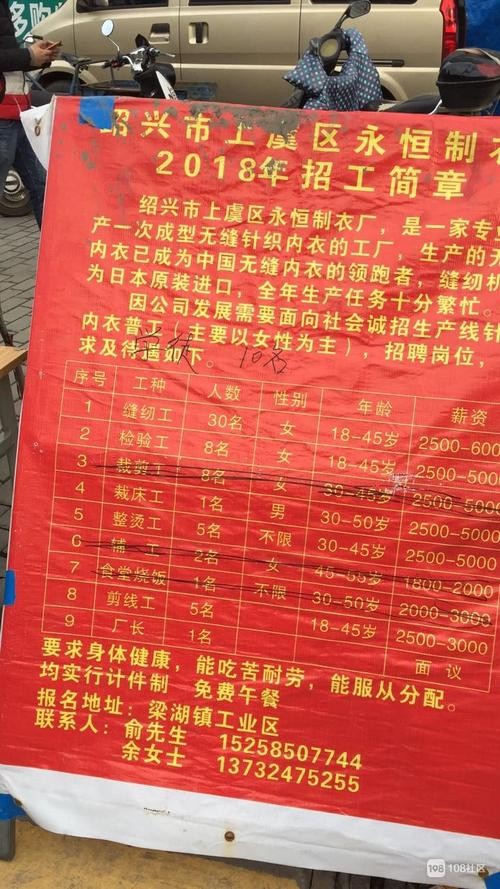 多购
绍兴市上虞区永恒制衣
2018年招工简章
绍兴市上虞区永恒制衣厂，是一家专
产一次成型无缝针织内衣的工厂，生产的无
内衣已成为中国无缝内衣的领跑者，缝纫机
为日本原装进口，全年生产任务十分繁忙。
因公司发展需要面向社会诚招生产线针
内衣普工（主要以女性为主），招聘岗位，
求及待遇如下。
学徒 10名
序号 工种 人数 性别 年龄 薪资
1 缝纫工 30名 女 18-45岁 2500-600
2 检验工 8名 女 18-45岁 2500-500
3 裁剪工 8名 女 30-45岁 2500-5000
4 裁床工 1名 男 30-50岁 2500-5000
5 整烫工 5名 不限 30-45岁 2500-5000
6 辅 工 2名 女 45-55岁 1800-2000
7 食堂烧饭 1名 不限 30-50岁 2000-3000
8 剪线工 5名 18-45岁 2500-3000
9 厂长 1名 面议
要求身体健康，能吃苦耐劳，能服从分配。
均实行计件制 免费午餐
报名地址：梁湖镇工业区
联系人：俞先生 15258507744
余女士 13732475255
108 108社区